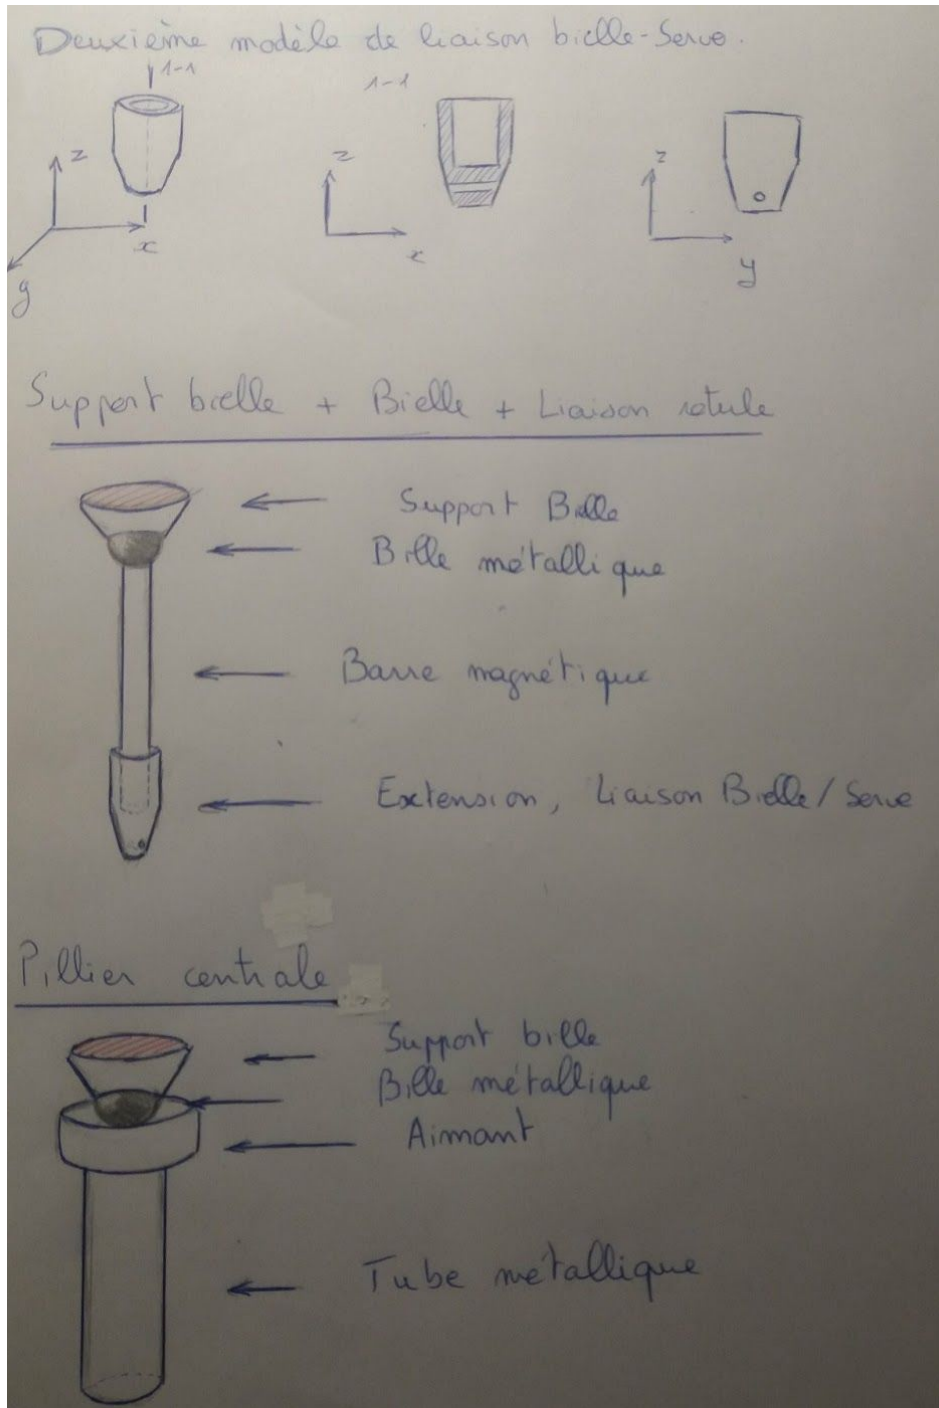 Deuxième modèle de liaison bielle-Servo.
1-1
1-1
z
x
y
z
x
z
y
Support bielle + Bielle + Liaison rotule
Support Bille
Bille métallique
Barre magnétique
Extension, Liaison Bielle/Servo
Pillier centrale
Support bille
Bille métallique
Aimant
Tube métallique